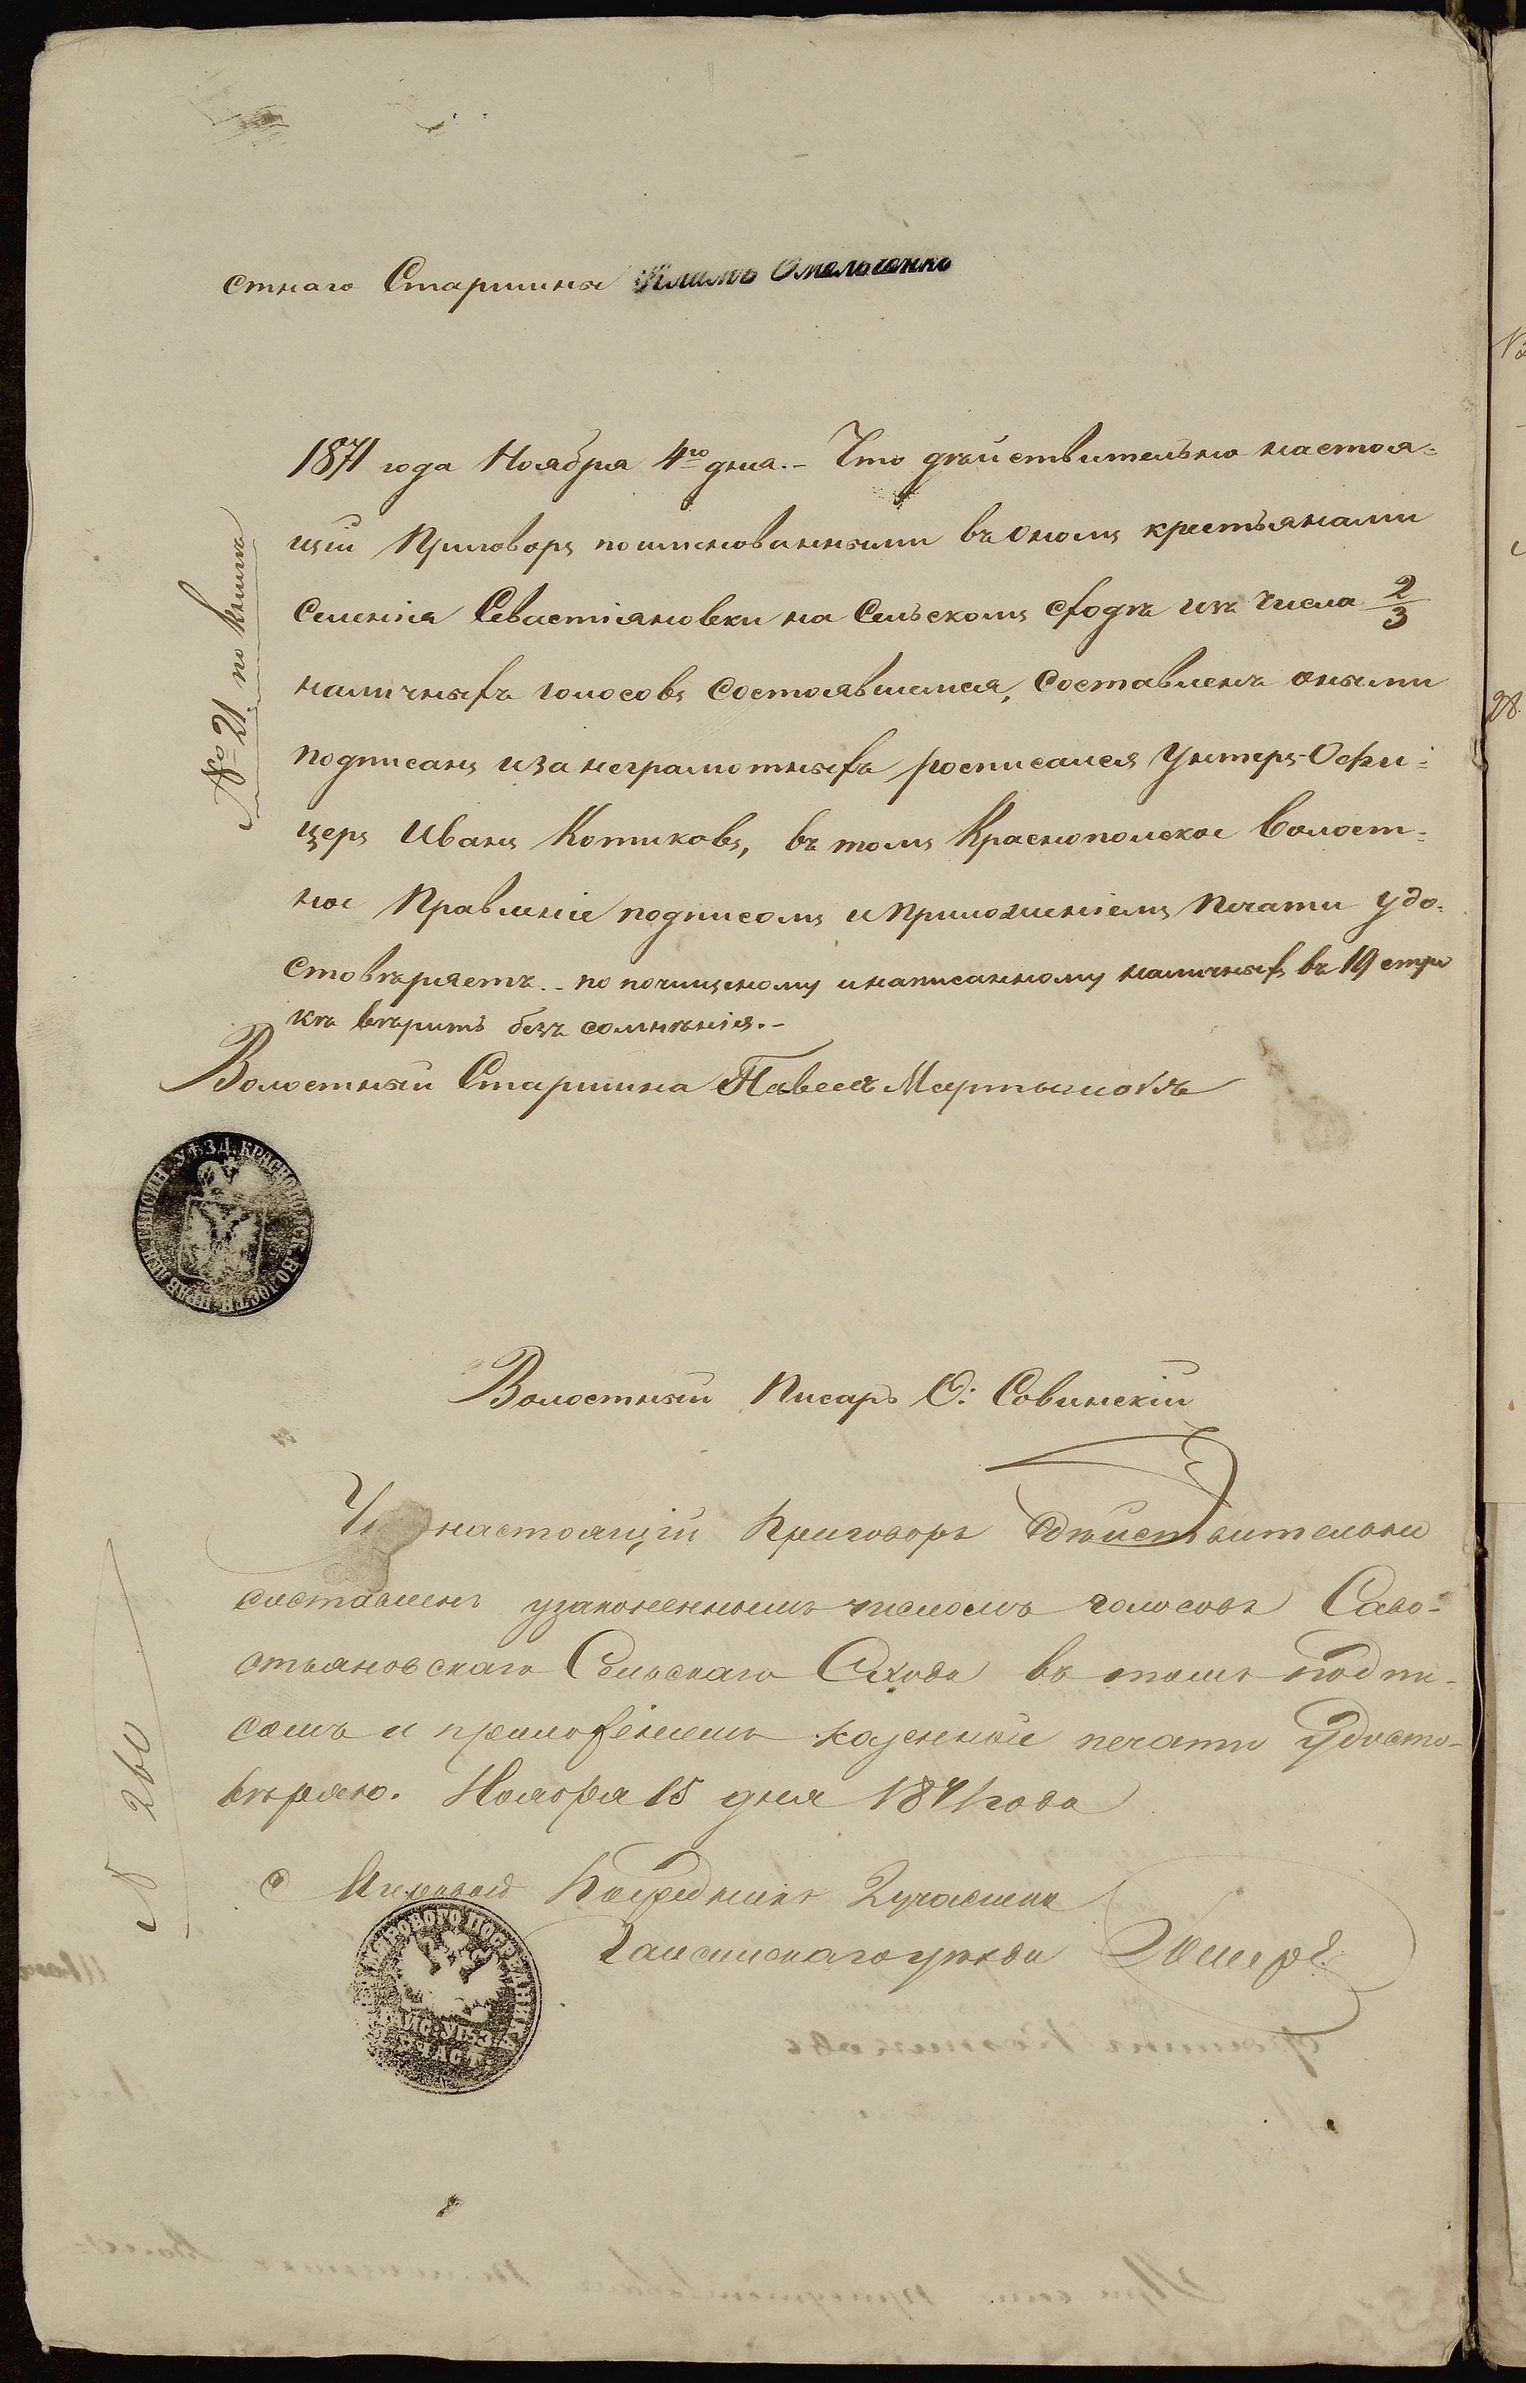 стнаго Старшины Климъ Омельченко
1871 года Ноября 4го дня. - Что дѣйствительно настоя=
щій Приговоръ поименованными въ ономъ крестьянами
Селенія Севастіяновки на Сельскомъ сходѣ изъ числа 2/3
наличныхъ голосовъ состоявшемся, составленъ оными
подписанъ и за неграмотныхъ росписался Унтеръ-Офи=
церъ Иванъ Котиковъ, въ томъ Краснопольское Волост=
ное Правленіе подписомъ и приложеніемъ печати удо=
стовѣряетъ. - по почищеному и написанному наличныхъ въ 19 стро
кѣ вѣрить безъ сомнѣнія. -
Волостный Старшина Павелъ Мартынокъ
№ 21 по книгѣ
ГАЙСИН. УѢЗД. КРАСНОПОЛЬСК. ВОЛОСТН. ПРАВЛЕН.
Волостный Писарь О: Совинскій
настоящій приговоръ дѣйствительно
составленъ узаконеннымъ числомъ голосовъ Саво-
стьяновскаго Сельскаго Схода въ томъ подпи-
сомъ и приложеніемъ казенной печати удосто-
вѣряю. Ноября 15 дня 1871 года
№ 260
Мировой Посредникъ 2 участка
Гайсинскаго уѣзда
МИРОВОГО ПОСРЕДНИКА
ГАЙС: УѢЗ:
УЧАСТ:
28